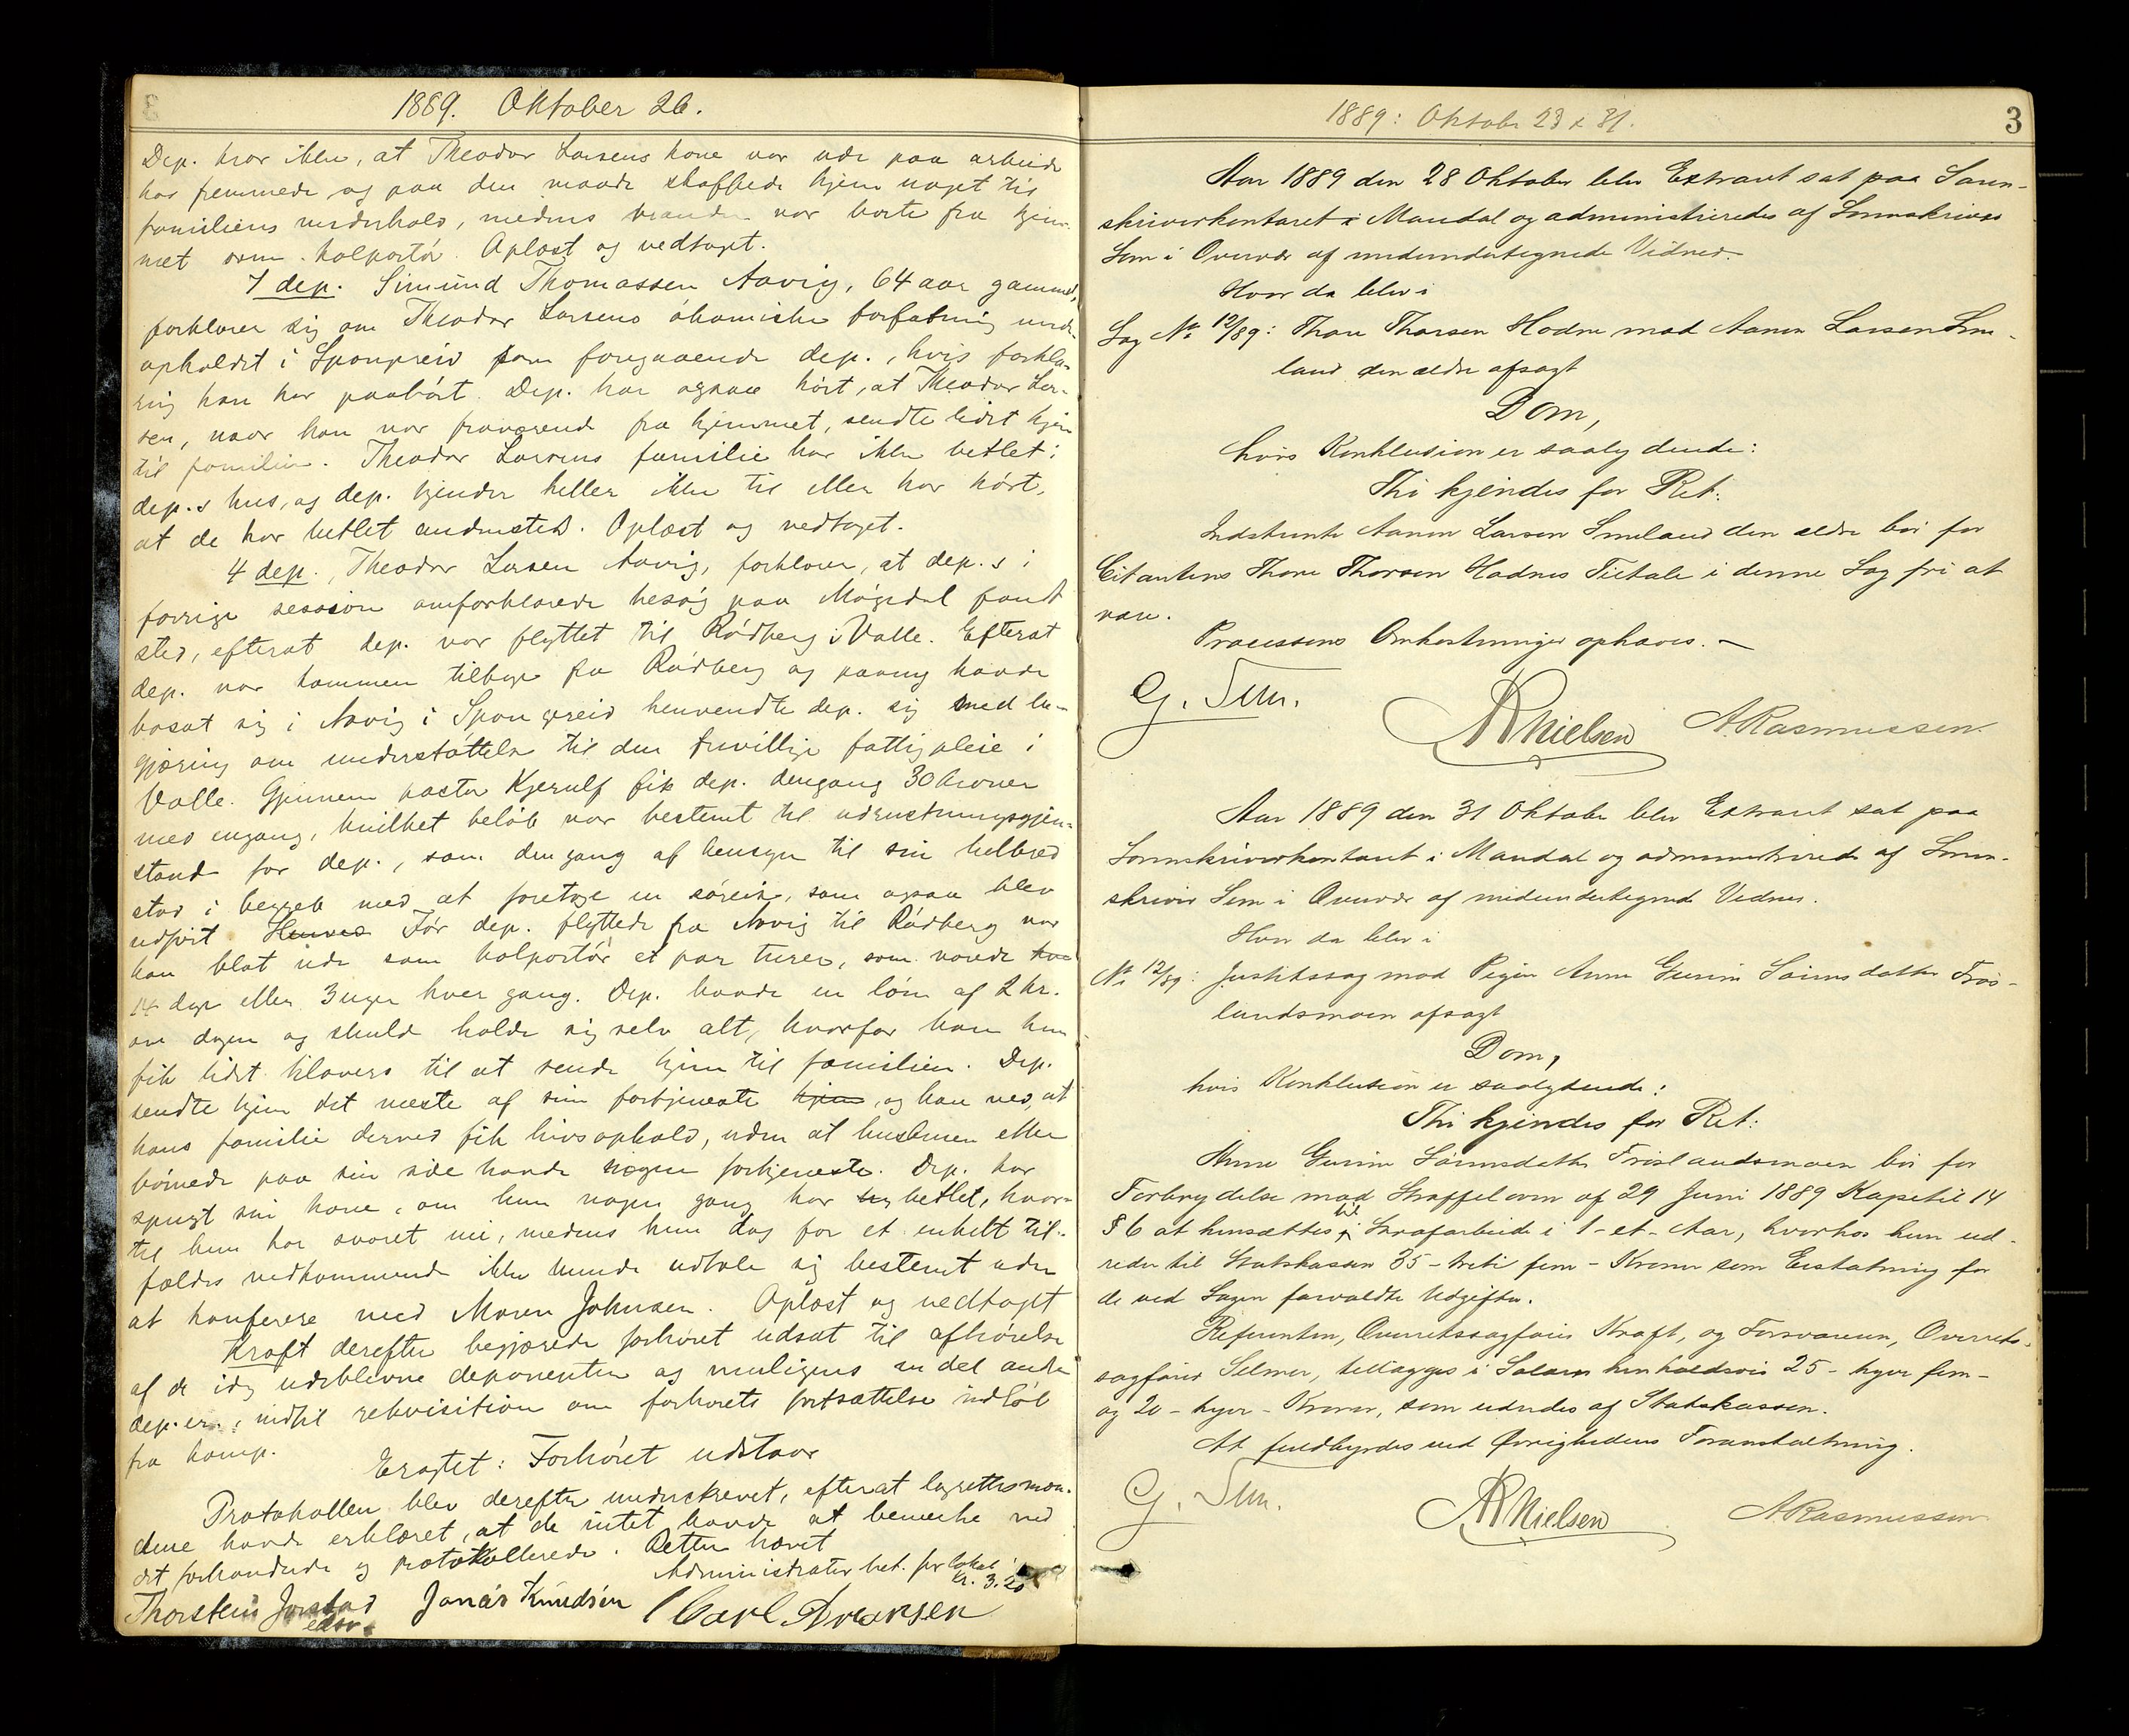 1889. Oktober 26.
Dep. tror ikke, at Theodor Larsens kone var ude paa arbeide
hos fremmede og paa den maade skaffede hjem noget til
familiens underhold, medens manden var borte fra hjem-
met som kolportør. Oplæst og vedtaget.
7 dep. Simund Thomassen Aavig, 64 aar gammel,
forklarer sig om Theodor Larsens økonomiske forfatning under
opholdet i Spangreid som foregaaende dep., hvis forkla-
ring han har paahørt. Dep. har ogsaa hørt, at Theodor Lar-
sen, naar han var fraværende fra hjemmet, sendte lidt hjem
til familien. Theodor Larsens familie har ikke betlet i
dep.s hus, og dep. kjender heller ikke til eller har hørt,
at de har betlet andensteds. Oplæst og vedtaget.
4 dep., Theodor Larsen Aavig, forklarer, at dep.s i
forrige session omforklarede besøg paa Møgedal fandt
sted, efterat dep. var flyttet til Rødberg i Valle. Efterat
dep. var kommen tilbage fra Rødberg og paany havde
bosat sig i Aavig i Spangreid henvendte dep. sig med be-
gjæring om understøttelse til den frivillige fattigpleie i
Valle. Gjennem pastor Kjerulf fik dep. dengang 30 kroner
med engang, hvilket beløb var bestemt til udrustningsgjen-
stande for dep., som dengang af hensyn til sin helbred
stod i begreb med at foretage en søreise, som ogsaa blev
udført. Før dep. flyttede fra Aavig til Rødberg var
han blot ude som kolportør et par turer, som varede
14 dage eller 3 uger hver gang. Dep. havde en løn af 2 kr.
om dagen og skulde holde sig selv alt, hvorfor han kun
fik lidet tilovers til at sende hjem til familien. Dep.
sendte hjem det meste af sin fortjeneste hjem, og han ved, at
hans familie derved fik livsophold, uden at hustruen eller
børnede paa sin side havde nogen fortjeneste. Dep. har
spurgt sin kone, om hun nogen gang har betlet, hvor-
til hun har svaret nei, medens hun dog for et enkelt til-
fældes vedkommende ikke kunde udtale sig bestemt uden
at konferere med Maren Johnsen. Oplæst og vedtaget
Kraft derefter begjærede forhøret udsat til afhørelse
af de idag udeblevne deponenter og muligens en del andre
dep.er., indtil rekvisition om forhørets fortsættelse indløb
fra komp.
Eragtet: Forhøret udstaar
Protokollen blev derefter underskrevet, efterat lagrettesmæn-
dene havde erklæret, at de intet havde at bemerke ved
det forhandlede og protokollerede. Retten hævet
Administrator bet. for lokal
kr. 3.20
Thorstein Jaastad Jonas Knudsen Carl Arvesen
edsv.
1889: Oktobr 23 & 31.
3
Aar 1889 den 28 Oktober blev Extraret sat paa Soren-
skriverkontoret i Mandal og administreredes af Sorenskriver
Sem i Overvær af medundertegnede Vidner.
Hvor da blev i
Sag No 12/89: Thore Thorsen Hodne mod Aanen Larsen Sme-
land den ældre afsagt
Dom,
hvis Konklusion er saalydende:
Thi kjendes for Ret:
Indstevnte Aanen Larsen Smeland den ældre bør for
Citantens Thore Thorsen Hodnes Tiltale i denne Sag fri at
være.
Processens Omkostninger ophæves. –
G. Sem. NNielsen A. Rasmussen.
Aar 1889 den 31 Oktober blev Extraret sat paa
Sorenskriverkontoret i Mandal og administreredes af Soren-
skriver Sem i Overvær af medundertegnede Vidner.
Hvor da blev i
No 12/89: Justitssag mod Pigen Anne Gurine Sørensdatter Frøis-
landsmoen afsagt
Dom,
hvis Konklusion er saalydende:
Thi kjendes for Ret:
Anne Gurine Sørensdatter Frøislandsmoen bør for
Forbrydelse mod Straffeloven af 29 Juni 1889 Kapitel 14
§ 6 at hensættes til Strafarbeide i 1 - et - Aar, hvorhos hun ud-
reder til Statskassen 35 - treti fem - Kroner som Erstatning for
de ved Sagen forvoldte Udgifter.
Referenten, Overretssagfører Kraft, og Forsvareren, Overrets-
sagfører Selmer, tillægges i Salær henholdsvis 25 - tyve fem -
og 20 - tyve - Kroner, som udredes af Statskassen.
At fuldbyrdes ved Øvrighedens Foranstaltning.
G. Sem. NNielsen A Rasmussen